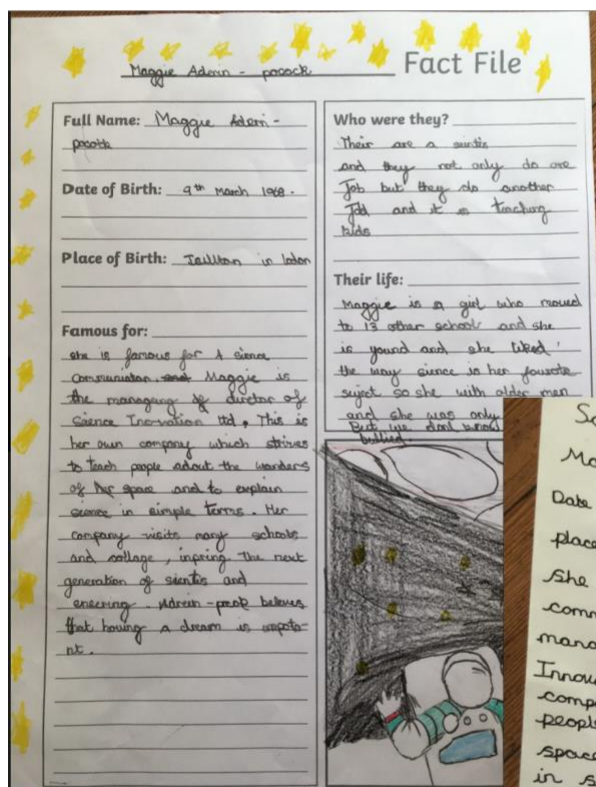 Maggie Aderin - pocock Fact File
Full Name: Maggie Aderi -
pocotk
Date of Birth: 9th March 1968.
Place of Birth: in
Famous for:
she is famous for A sience
communiator. Maggie is
the managing director of
Science Inovation ltd, This is
her own company which strives
to teach people adout the wonders
of space and to explain
science in simple terms. Her
company visits many schools
and collage, inpring the next
generation of sientis and
eneering. believes
that having a dream is impota-
nt.
Who were they?
Their are a
and they not only do one
Job but they do another
Job and it is teaching
kids
Their life:
Maggie is a girl who moved
to 13 other school and she
is yound and she liked
the way sience is her
suject so she with older men
and she was only
But we dont know
bullied.
Sc
Ma
Date
place
she
comm
mana
Innov
compa
people
space
in s